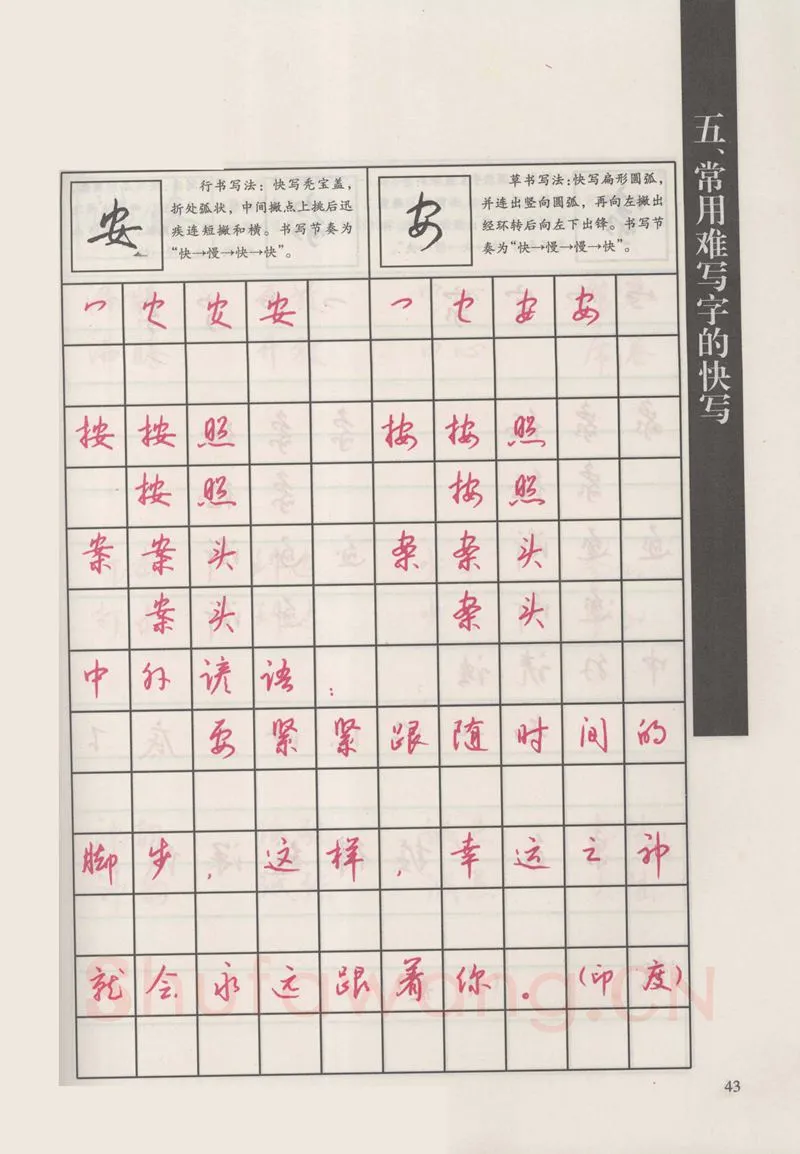 五、常用难写字的快写
安
行书写法：快写秃宝盖，
折处弧状，中间撇点上挑后迅
疾连短撇和横。书写节奏为
“快→慢→快→快”。
安
草书写法：快写扁形圆弧，
并连出竖向圆弧，再向左撇出
经环转后向左下出锋。书写节
奏为“快→慢→慢→快”。
安 安
按 按 照 按 按 照
按 照 按 照
案 案 头 案 案 头
案 头 案 头
中 外 谚 语 ：
要 紧 紧 跟 随 时 间 的
脚 步 ， 这 样 ， 幸 运 之 神
就 会 永 远 跟 着 你 。 （印 度）
Shufawang.CN
43